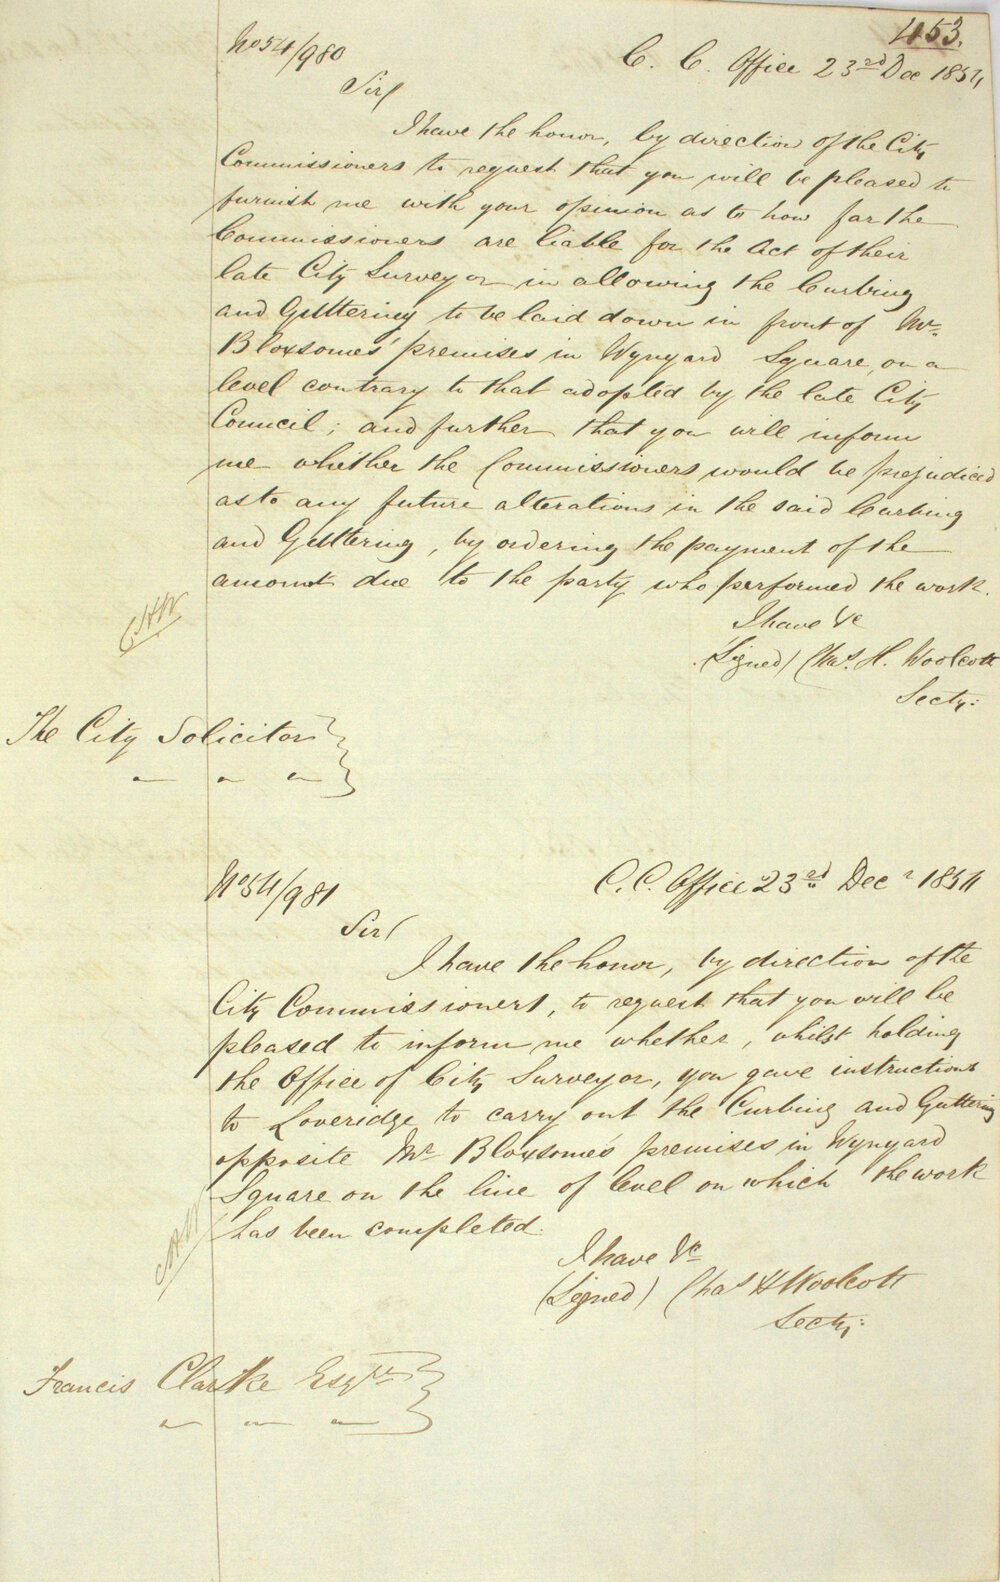 453.
No 54/980
C. C. Office 23rd Dec 1854
Sir/
I have the honor, by direction of the City
Commissioners to request that you will be pleased to
furnish me with your opinion as to how far the
Commissioners are liable for the Act of their
late City Surveyor in allowing the Curbing
and Guttering to be laid down in front of Mr.
Bloxsomes' premises in Wynyard Square, on a
level contrary to that adopted by the late City
Council; and further that you will inform
me whether the Commissioners would be prejudiced
as to any future alterations in the said Curbing
and Guttering, by ordering the payment of the
amount due to the party who performed the work.
I have &c
(Signed) Chas. H. Woolcott
Secty:
CHW
The City Solicitor
No 54/981
C. C. Office 23rd Decr 1854
Sir/
I have the honor, by direction of the
City Commissioners, to request that you will be
pleased to inform me whether, whilst holding
the Office of City Surveyor, you gave instructions
to Loveridge to carry out the Curbing and Guttering
opposite Mr Bloxsome's premises in Wynyard
Square on the line of level on which the work
has been completed.
I have &c
(Signed) Chas H Woolcott
Secty:
CHW
Francis Clarke Esqre